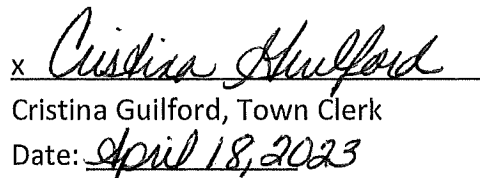 x Cristina Guilford
Cristina Guilford, Town Clerk
Date: April 18, 2023